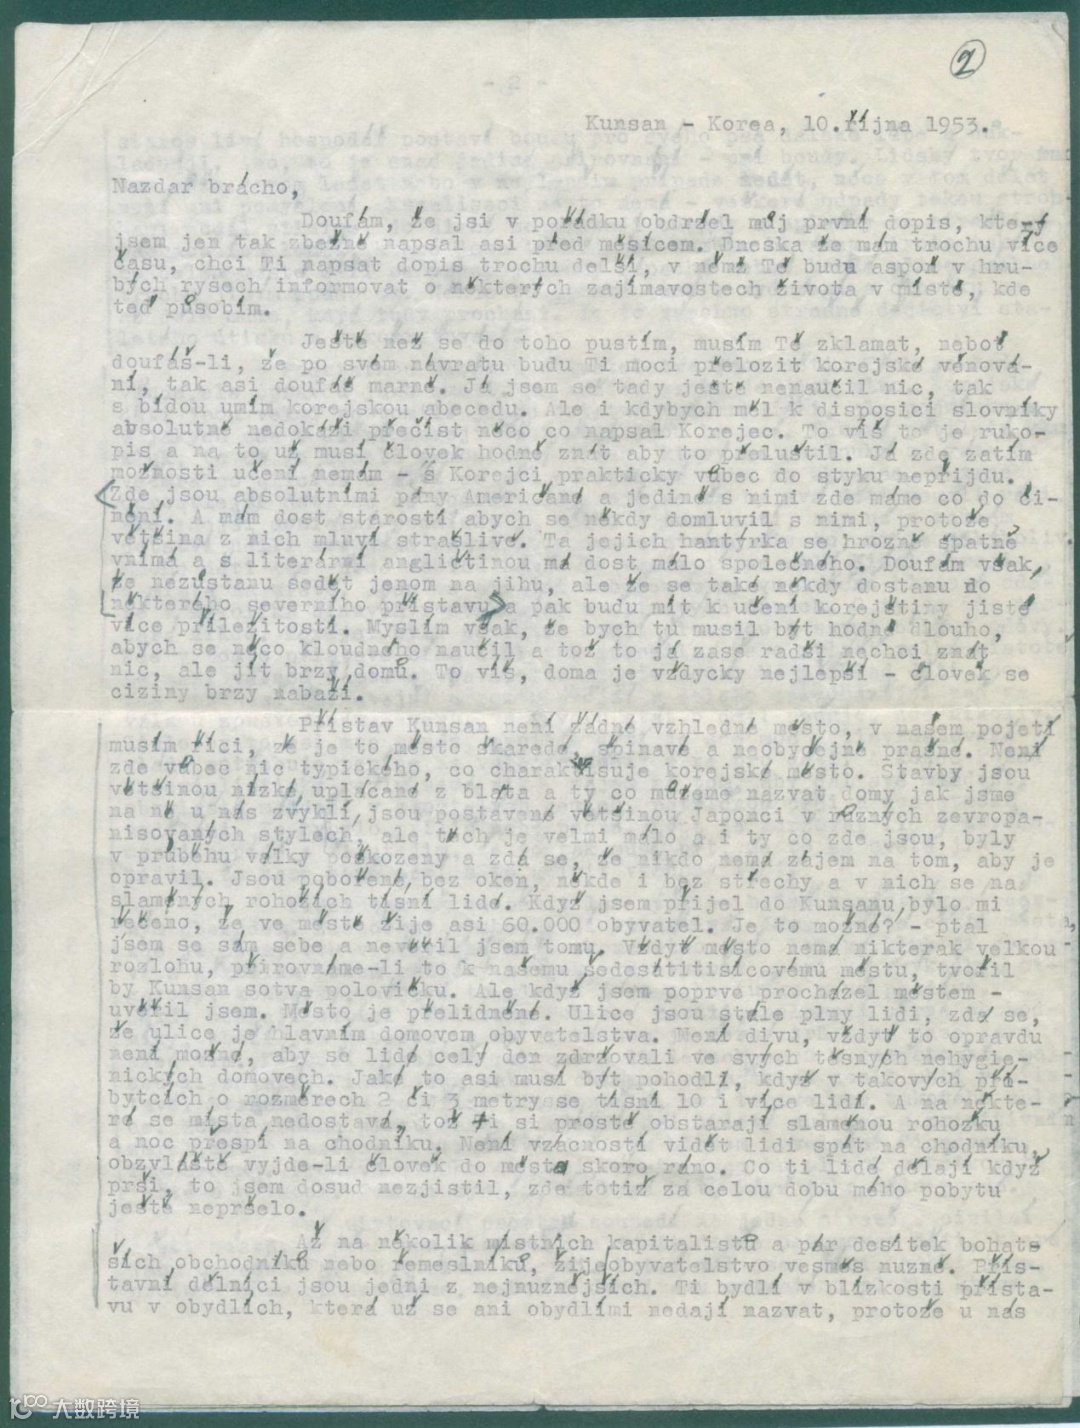 2
- 2 -
Kunsan - Korea, 10.října 1953.
Nazdar brácho,
Doufám, že jsi v pořádku obdržel můj první dopis, který
jsem jen tak zběžně napsal asi před měsícem. Dneska že mám trochu více
času, chci Ti napsat dopis trochu delší, v němž Tě budu aspoň v hru-
bých rysech informovat o některých zajímavostech života v místě, kde
teď působím.
Ještě než se do toho pustím, musím Tě zklamat, neboť
doufáš-li, že po svém návratu budu Ti moci přeložit korejské věnová-
ní, tak asi doufáš marně. Já jsem se tady ještě nenaučil nic, tak
s bídou umím korejskou abecedu. Ale i kdybych měl k disposici slovníky
absolutně nedokáži přečíst něco co napsal Korejec. To víš to je ruko-
pis a na to už musí člověk hodně znát aby to přeluštil. Já zde zatím
možnosti učení nemám - s Korejci prakticky vůbec do styku nepřijdu.
Zde jsou absolutními pány Američané a jedině s nimi zde máme co do či-
nění. A mám dost starostí abych se někdy domluvil s nimi, protože
většina z nich mluví strašlivě. Ta jejich hantýrka se hrozně špatně
vnímá a s literární angličtinou má dost málo společného. Doufám však,
že nezůstanu sedět jenom na jihu, ale že se také někdy dostanu do
některého severního přístavu a pak budu mít k učení korejštiny jistě
více příležitostí. Myslím však, že bych tu musil být hodně dlouho,
abych se něco kloudného naučil a tož to já zase radši nechci znát
nic, ale jít brzy domů. To víš, doma je vždycky nejlepší - člověk se
ciziny brzy nabaží.
Přístav Kunsan není žádné vzhledné město, v našem pojetí
musím říci, že je to město škaredé, špinavé a neobyčejně prašné. Není
zde vůbec nic typického, co charakterisuje korejské město. Stavby jsou
většinou nízké, uplácané z bláta a ty co můžeme nazvat domy jak jsme
na ně u nás zvyklí, jsou postavené většinou Japonci v různých zevropa-
nisovaných stylech, ale těch je velmi málo a i ty co zde jsou, byly
v průběhu války poškozeny a zdá se, že nikdo nemá zájem na tom, aby je
opravil. Jsou pobořené, bez oken, někde i bez střechy a v nich se na
slaměných rohožích tísní lidé. Když jsem přijel do Kunsanu, bylo mi
řečeno, že ve městě žije asi 60.000 obyvatel. Je to možné? - ptal
jsem se sám sebe a nevěřil jsem tomu. Vždyť město nemá nikterak velkou
rozlohu, přirovnáme-li to k našemu šedesátitisícovému městu, tvořil
by Kunsan sotva polovičku. Ale když jsem poprvé procházel městem -
uvěřil jsem. Město je přelidněné. Ulice jsou stále plny lidí, zdá se,
že ulice je hlavním domovem obyvatelstva. Není divu, vždyť to opravdu
není možné, aby se lidé celý den zdržovali ve svých těsných nehygie-
nických domovech. Jaké to asi musí být pohodlí, když v takových pří-
bytcích o rozměrech 2 či 3 metry se tísní 10 i více lidí. A na někte-
ré se místa nedostává, tož ti si prostě obstarají slaměnou rohožku
a noc přespí na chodníku. Není vzácností vidět lidi spát na chodníku,
obzvláště vyjde-li člověk do města skoro ráno. Co ti lidé dělají když
prší, to jsem dosud nezjistil, zde totiž za celou dobu mého pobytu
ještě nepršelo.
Až na několik místních kapitalistů a pár desítek bohat-
ších obchodníků nebo řemeslníků, žije obyvatelstvo vesměs nuzně. Přís-
tavní dělníci jsou jedni z nejnuznějších. Ti bydlí v blízkosti přísta-
vu v obydlích, která už se ani obydlími nedají nazvat, protože u nás
大数跨境